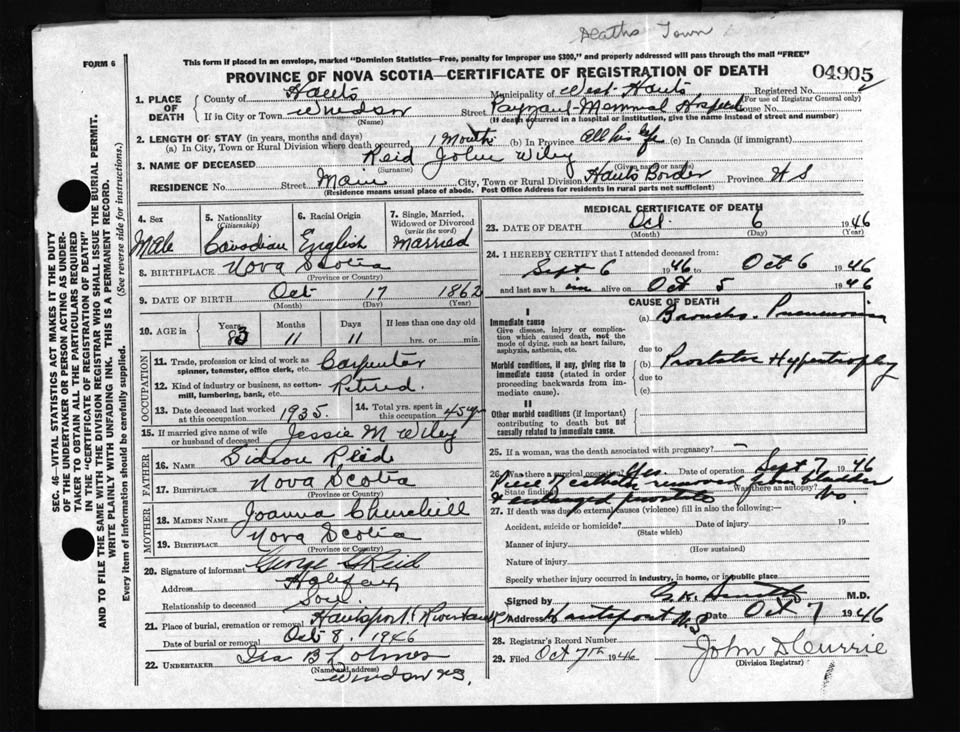 Deaths Town
FORM 6
This form if placed in an envelope, marked "Dominion Statistics—Free, penalty for improper use $300," and properly addressed will pass through the mail "FREE"
PROVINCE OF NOVA SCOTIA—CERTIFICATE OF REGISTRATION OF DEATH
04905
1. PLACE OF DEATH
County of Hants Municipality of West Hants Registered No.
(For use of Registrar General only)
If in City or Town Windsor Street Payzant Memorial Hospital House No.
(Name) (If death occurred in a hospital or institution, give the name instead of street and number)
2. LENGTH OF STAY (in years, months and days)
(a) In City, Town or Rural Division where death occurred, 1 Month (b) In Province All his life (c) In Canada (if immigrant)
3. NAME OF DECEASED Reid John Wiley
(Surname) (Given name or names)
RESIDENCE No. Street Main City, Town or Rural Division Hants Border Province N S
(Residence means usual place of abode. Post Office Address for residents in rural parts not sufficient)
4. Sex Male
5. Nationality (Citizenship) Canadian
6. Racial Origin English
7. Single, Married, Widowed or Divorced (write the word) Married
8. BIRTHPLACE Nova Scotia
(Province or Country)
9. DATE OF BIRTH Oct 17 1862
(Month) (Day) (Year)
10. AGE in Years Months Days If less than one day old
83 11 11 hrs. or min.
OCCUPATION
11. Trade, profession or kind of work as spinner, teamster, office clerk, etc. Carpenter
12. Kind of industry or business, as cotton-mill, lumbering, bank, etc. Retired.
13. Date deceased last worked at this occupation 1935.
14. Total yrs. spent in this occupation 45 yrs
15. If married give name of wife or husband of deceased Jessie M Wiley
FATHER
16. NAME Gideon Reid
17. BIRTHPLACE Nova Scotia
(Province or Country)
MOTHER
18. MAIDEN NAME Joanna Churchill
19. BIRTHPLACE Nova Scotia
(Province or Country)
20. Signature of informant George Reid
Address Halifax
Relationship to deceased Son.
21. Place of burial, cremation or removal Hantsport (Riverbank)
Date of burial or removal Oct 8. 1946
22. UNDERTAKER Ira B Holmes
(Name and address)
Windsor N.S.
MEDICAL CERTIFICATE OF DEATH
23. DATE OF DEATH Oct. 6 1946
(Month) (Day) (Year)
24. I HEREBY CERTIFY that I attended deceased from:
Sept 6 1946 to Oct 6 1946
and last saw h im alive on Oct 5 1946
CAUSE OF DEATH
I
Immediate cause
Give disease, injury or complication which caused death, not the mode of dying, such as heart failure, asphyxia, asthenia, etc.
(a) Broncho-Pneumonia
due to
Morbid conditions, if any, giving rise to immediate cause (stated in order proceeding backwards from immediate cause).
(b) Prostatic Hypertrophy
due to
(c)
II
Other morbid conditions (if important) contributing to death but not causally related to immediate cause.
25. If a woman, was the death associated with pregnancy? —
26. Was there a surgical operation? Yes. Date of operation Sept 7 1946
State findings Piece of catheter removed from bladder Was there an autopsy? No.
& enlarged prostate
27. If death was due to external causes (violence) fill in also the following:—
Accident, suicide or homicide? Date of injury 19
(State which)
Manner of injury
(How sustained)
Nature of injury
Specify whether injury occurred in industry, in home, or in public place
Signed by Smith M.D.
Address Hantsport N.S Date Oct 7 1946
28. Registrar's Record Number
29. Filed Oct 7th 1946 John D Currie
(Division Registrar)
SEC. 46—VITAL STATISTICS ACT MAKES IT THE DUTY
OF THE UNDERTAKER OR PERSON ACTING AS UNDER-
TAKER TO OBTAIN ALL THE PARTICULARS REQUIRED
IN THE "CERTIFICATE OF REGISTRATION OF DEATH"
AND TO FILE THE SAME WITH THE DIVISION REGISTRAR WHO SHALL ISSUE THE BURIAL PERMIT.
WRITE PLAINLY WITH UNFADING INK. THIS IS A PERMANENT RECORD.
Every item of information should be carefully supplied. (See reverse side for instructions.)